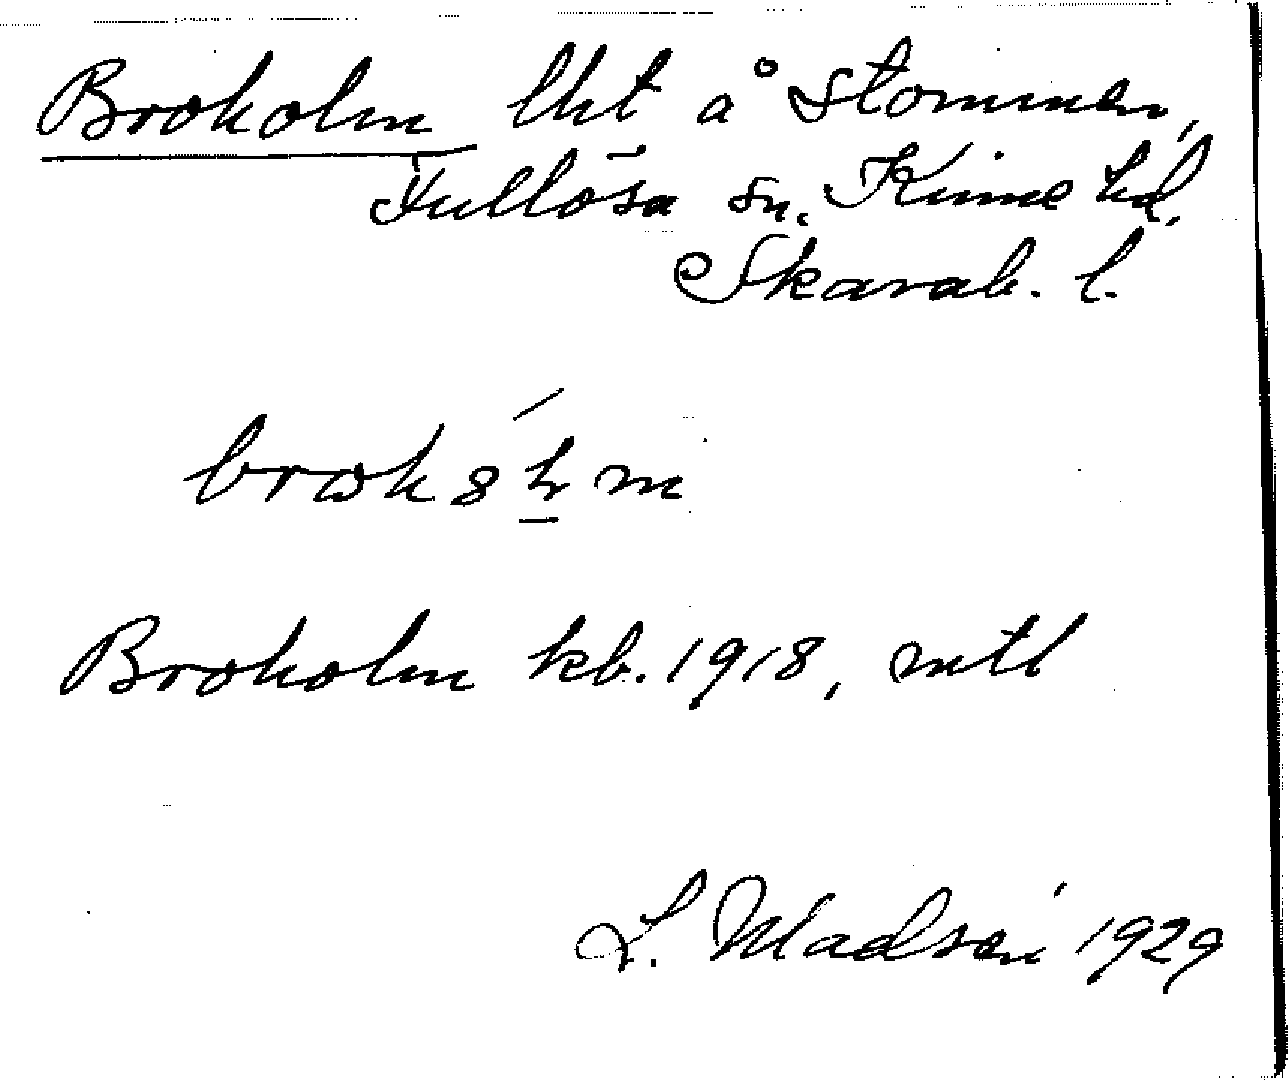 Broholm lht å Stommen,
Fullösa sn. Kinne hd,
Skarab. l.
Broholm kb. 1918, mtl
L. Madsén 1929